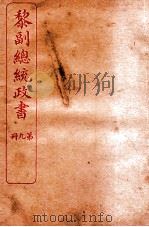 黎副總統政書
第九冊